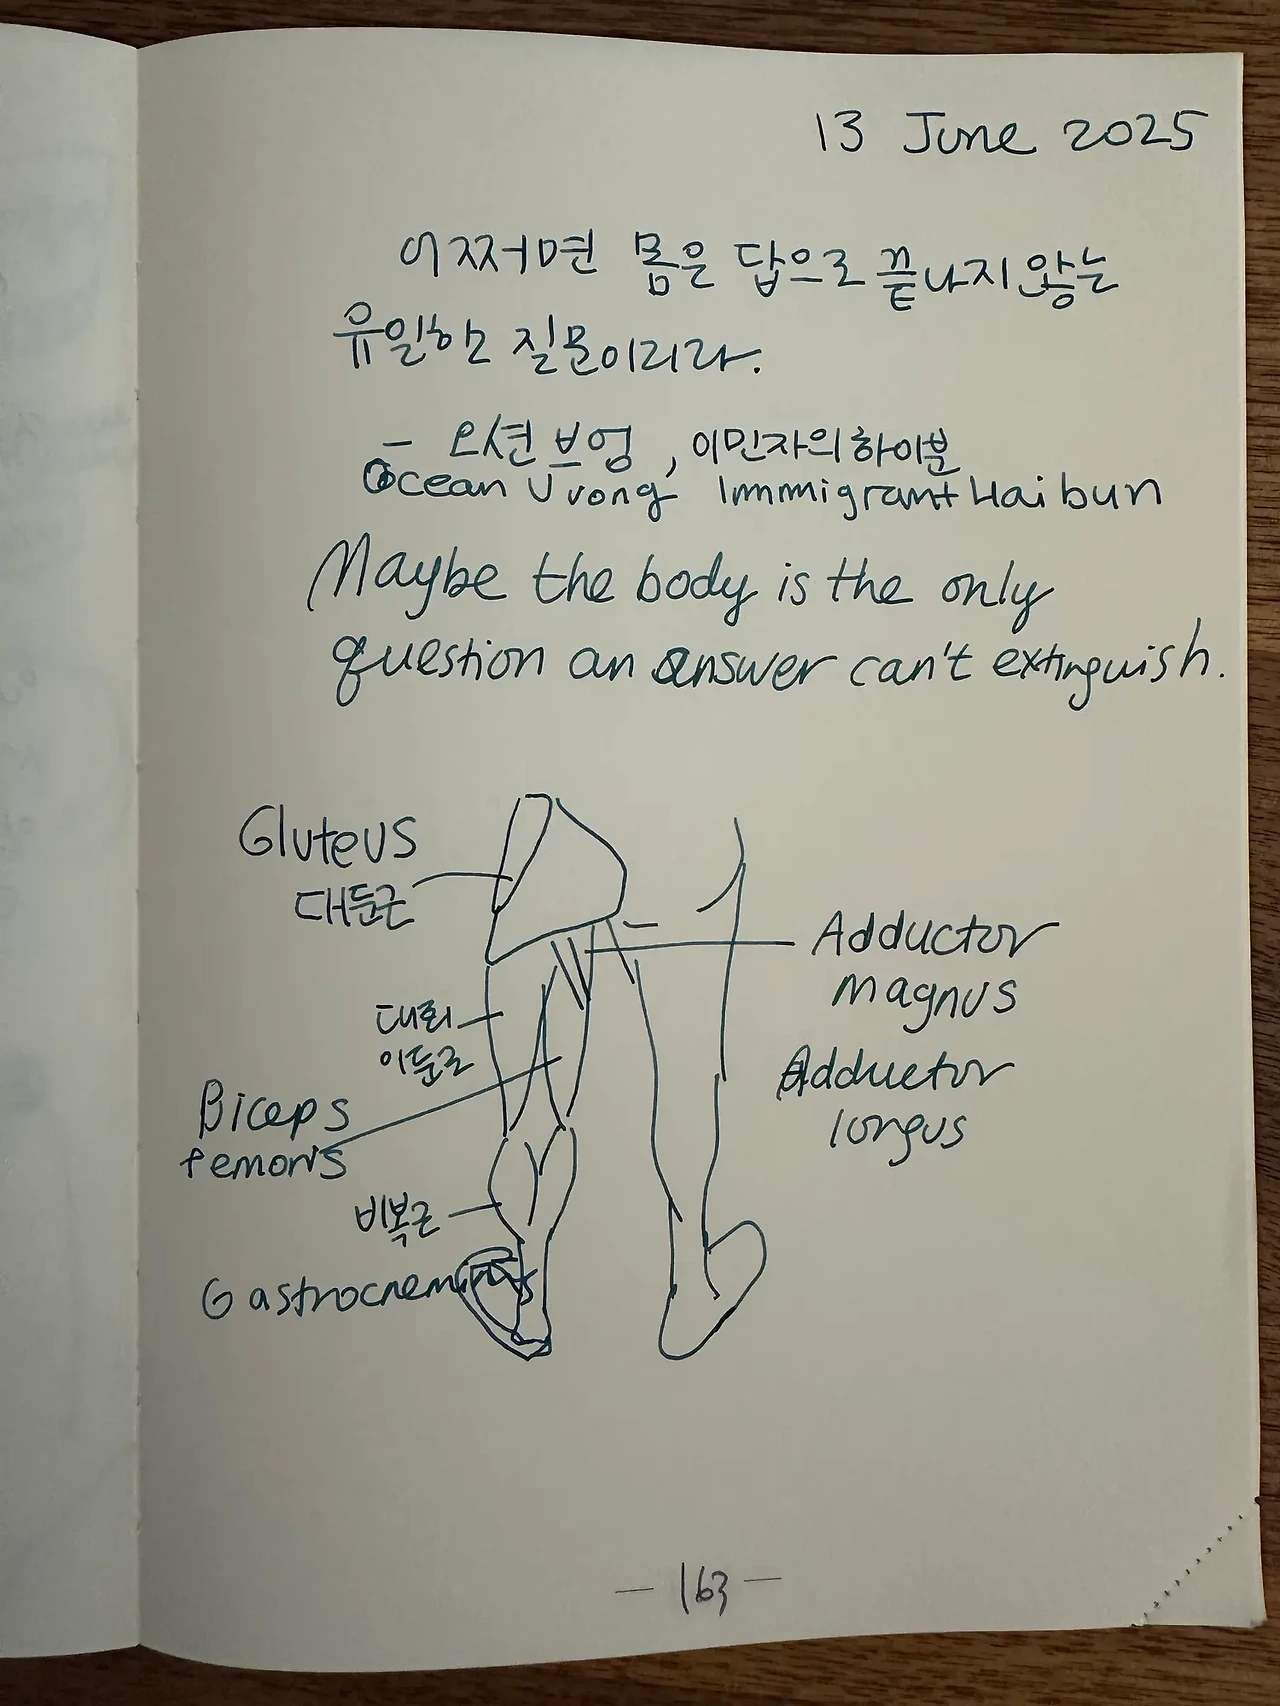 13 June 2025
어쩌면 몸은 답으로 끝나지 않는
유일한 질문이리라.
- 오션 브엉, 이민자의 하이분
Ocean Vuong Immigrant Haibun
Maybe the body is the only
question an answer can't extinguish.
Gluteus
대둔근
Adductor
magnus
대퇴
이둔근
Adductor
longus
Biceps
femoris
비복근
Gastrocnemius
- 163 -